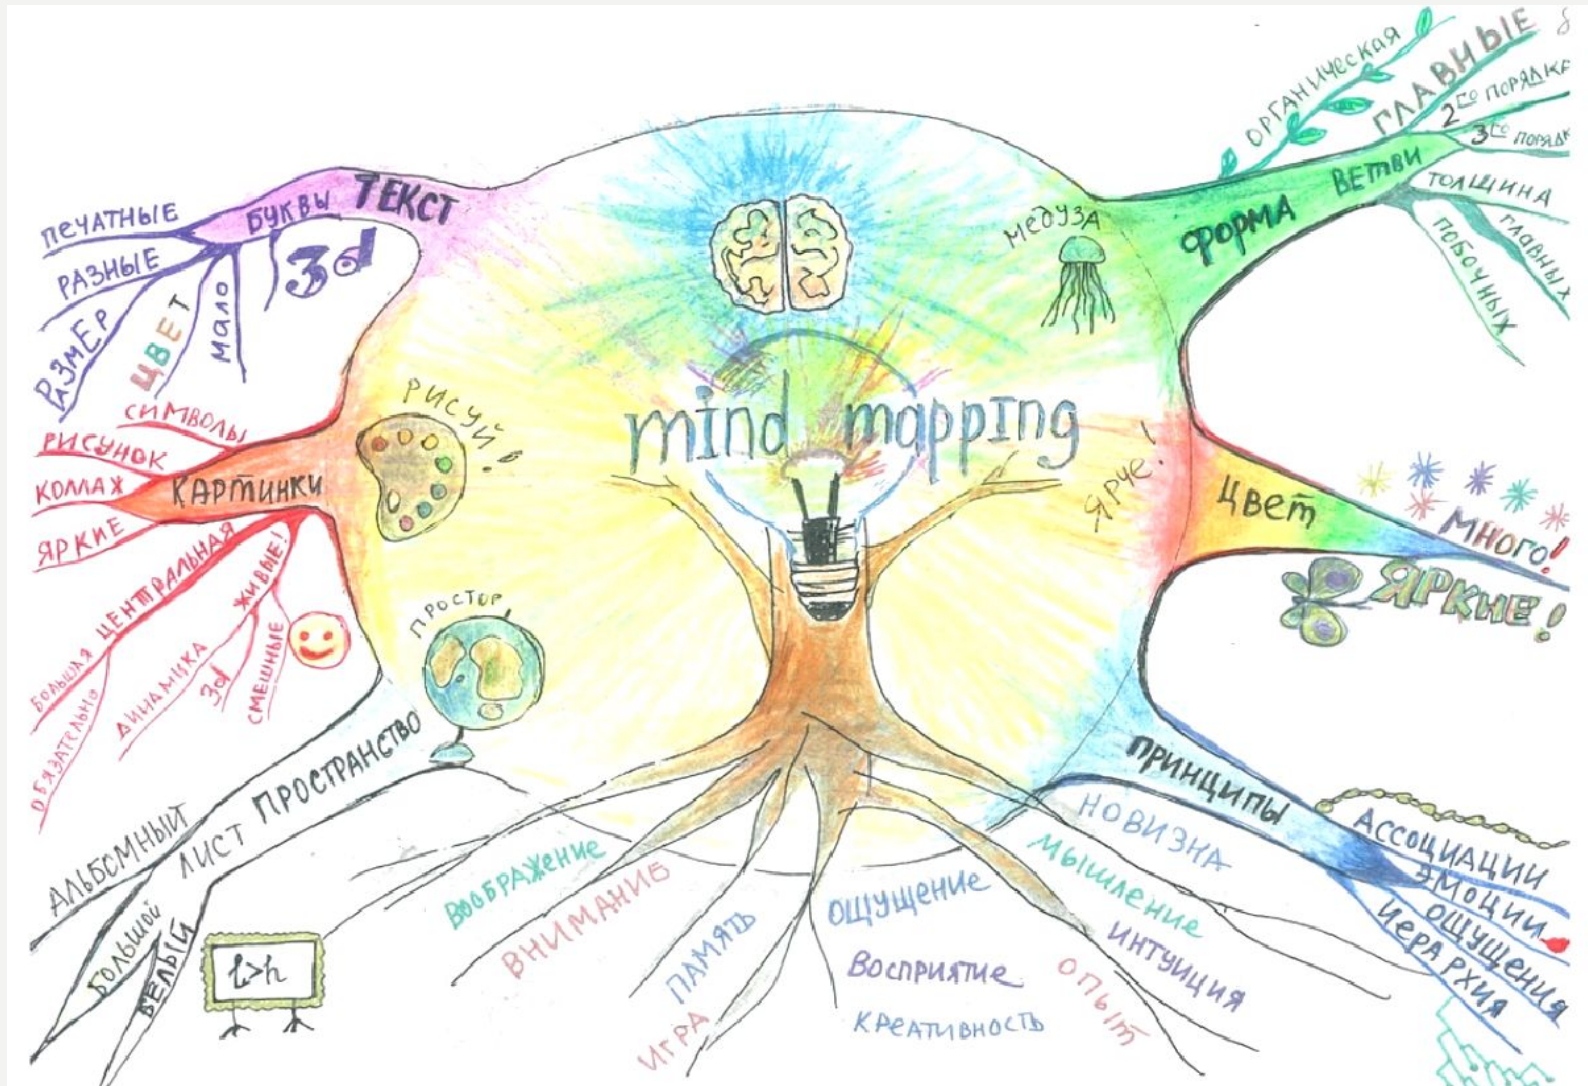 mind mapping
ТЕКСТ
БУКВЫ
ПЕЧАТНЫЕ
РАЗНЫЕ
РАЗМЕР
ЦВЕТ
МАЛО
3d
КАРТИНКИ
СИМВОЛЫ
РИСУНОК
КОЛЛАЖ
ЯРКИЕ
ЦЕНТРАЛЬНАЯ
БОЛЬШАЯ
ОБЯЗАТЕЛЬНО
ЖИВЫЕ!
ДИНАМИКА
3d
СМЕШНЫЕ
РИСУЙ!
ПРОСТОР
ПРОСТРАНСТВО
ЛИСТ
АЛЬБОМНЫЙ
БОЛЬШОЙ
БЕЛЫЙ
l>h
МЕДУЗА
ФОРМА
ВЕТВИ
ОРГАНИЧЕСКАЯ
ГЛАВНЫЕ
2ГО ПОРЯДКА
3ГО ПОРЯДК
ТОЛЩИНА
ГЛАВНЫХ
ПОБОЧНЫХ
ЯРЧЕ!
ЦВЕТ
МНОГО!
ЯРКИЕ!
ПРИНЦИПЫ
АССОЦИАЦИИ
ЭМОЦИИ
ОЩУЩЕНИЯ
ИЕРАРХИЯ
ВООБРАЖЕНИЕ
ВНИМАНИЕ
ПАМЯТЬ
ИГРА
ОЩУЩЕНИЕ
ВОСПРИЯТИЕ
КРЕАТИВНОСТЬ
НОВИЗНА
МЫШЛЕНИЕ
ИНТУИЦИЯ
ОПЫТ